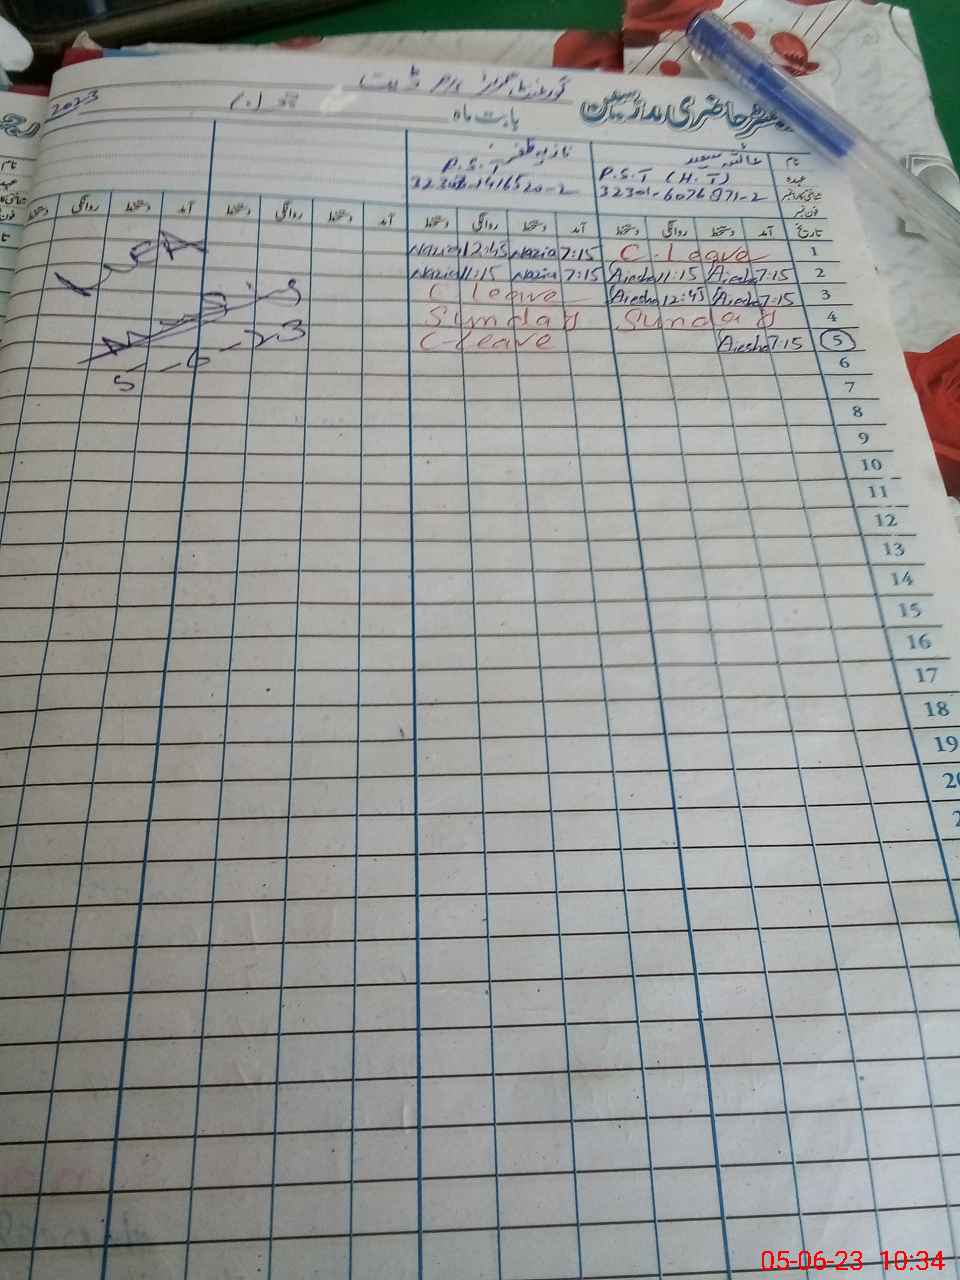 حاضری مدرسین
گورنمنٹ گرلز
بابت ماہ
2023
نام
عائشہ سعید
نازیہ ظفر
عہدہ
P.S.T (H.T)
P.S.T
32301-6076971-2
فون نمبر
تاریخ آمد دستخط روانگی دستخط آمد دستخط روانگی دستخط آمد دستخط روانگی دستخط آمد دستخط روانگی دستخط
1 C. Leave 7:15 Nazia 12:45 Nazia
2 7:15 Aiesha 11:15 Aiesha 7:15 Nazia 11:15 Nazia
3 7:15 Aiesha 12:45 Aiesha C Leave
4 Sunday Sunday
5 7:15 Aiesha C-Leave
5-6-23
6
7
8
9
10
11
12
13
14
15
16
17
18
19
05-06-23 10:34